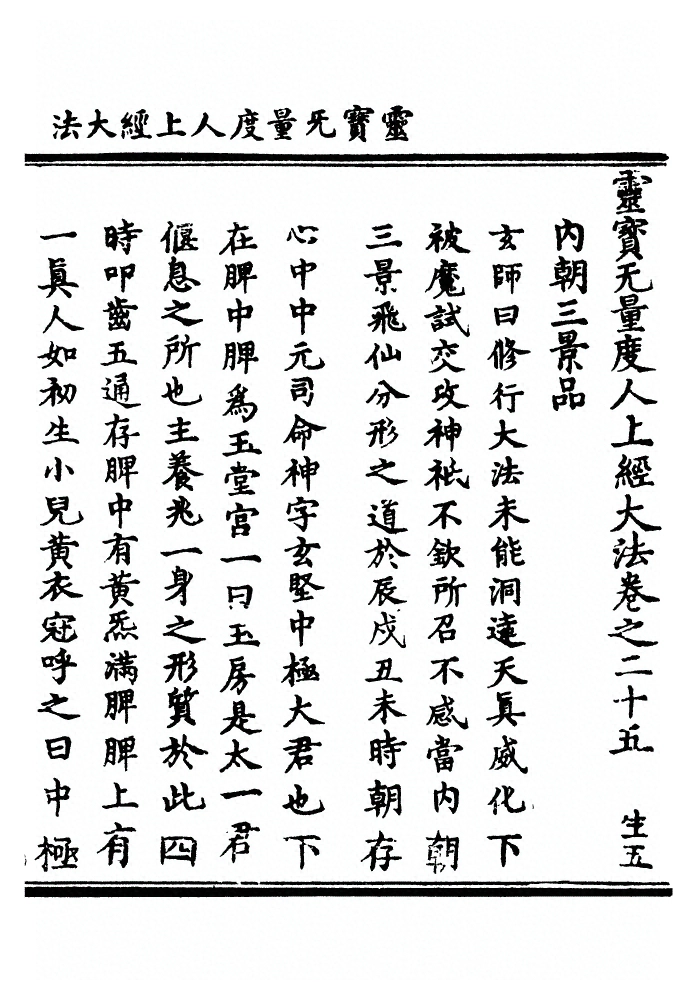 靈寶旡量度人上經大法
靈寶无量度人上經大法卷之二十五 生五
內朝三景品
玄師曰修行大法未能洞達天眞威化下
被魔試交攻神祇不欽所召不感當內朝
三景飛仙分形之道於辰戌丑未時朝存
心中中元司命神字玄堅中極大君也下
在脾中脾爲玉堂宮一曰玉房是太一君
偃息之所也主養兆一身之形質於此四
時叩齒五通存脾中有黃炁滿脾脾上有
一眞人如初生小兒黃衣冠呼之曰中極